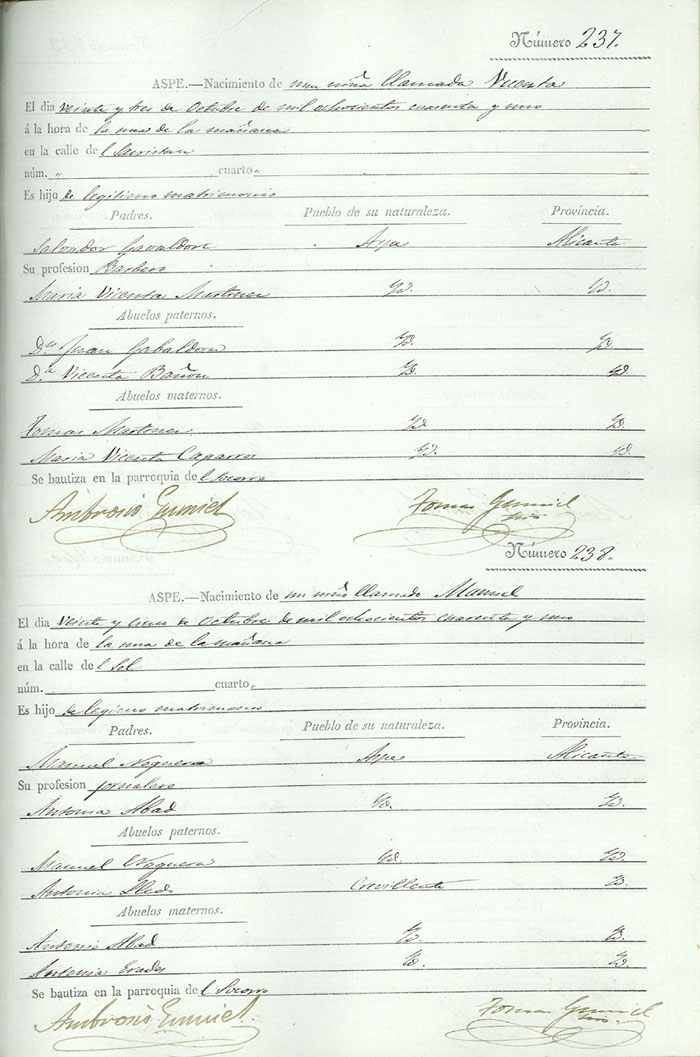 Número 237.
ASPE.—Nacimiento de una niña llamada Vicenta
El dia veinte y tres de Octubre de mil ochocientos cuarenta y uno
á la hora de la una de la mañana
en la calle del Sacristan
núm. " cuarto "
Es hijo de legitimo matrimonio
Padres. Pueblo de su naturaleza. Provincia.
Salvador Gavaldon Aspe Alicante
Su profesion Barbero
Maria Vicenta Martinez Yd. Yd.
Abuelos paternos.
Dn. Juan Gabaldon Yd. Yd.
Da. Vicenta Bañon Yd. Yd.
Abuelos maternos.
Tomas Martinez Yd. Yd.
Maria Vicenta Caparros Yd. Yd.
Se bautiza en la parroquia del Socorro
Ambrosio Gumiel Tomas Gumiel
Srio
Número 238.
ASPE.—Nacimiento de un niño llamado Manuel
El dia veinte y cinco de Octubre de mil ochocientos cuarenta y uno
á la hora de la una de la mañana
en la calle del Sol
núm. cuarto "
Es hijo de legitimo matrimonio
Padres. Pueblo de su naturaleza. Provincia.
Manuel Noguera Aspe Alicante
Su profesion jornalero
Antonia Abad Yd. Yd.
Abuelos paternos.
Manuel Noguera Yd. Yd.
Antonia Lledo Crevillente Yd.
Abuelos maternos.
Antonio Abad Yd. Yd.
Antonia Erades Yd. Yd.
Se bautiza en la parroquia del Socorro
Ambrosio Gumiel Tomas Gumiel
Srio